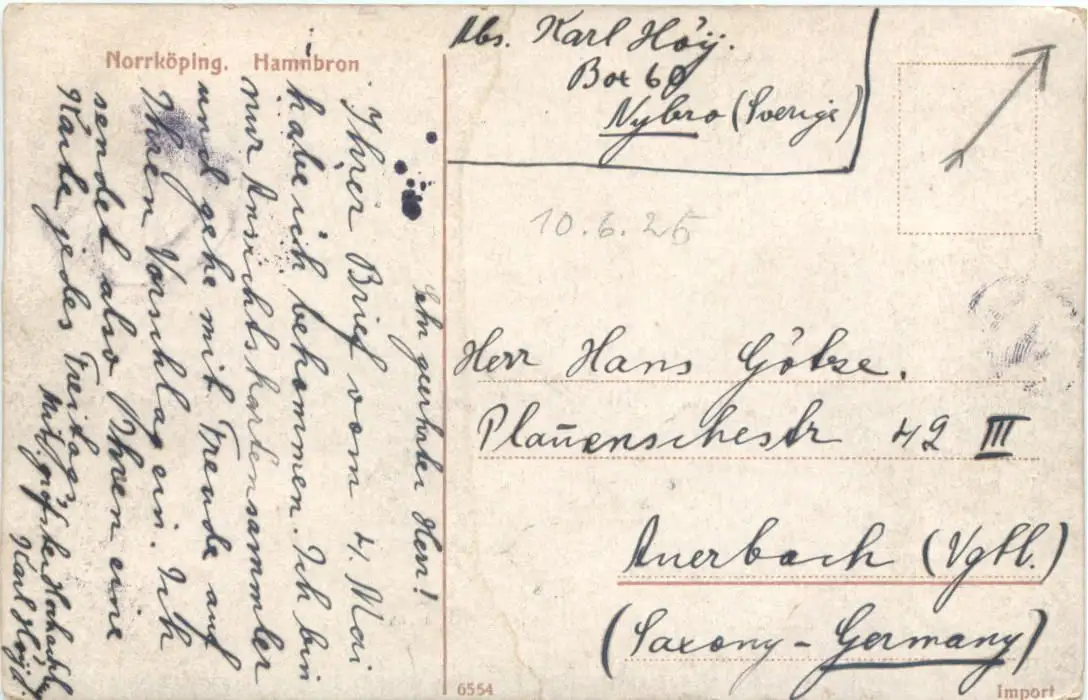 Norrköping. Hamnbron
Abs. Karl Höij.
Box 60
Nybro (Sverige)
10.6.25
Sehr geehrter Herr!
Ihren Brief vom 4. Mai
habe ich bekommen. Ich bin
nur Ansichtskartensammler
und gehe mit Freude auf
Ihren Vorschlag ein. Ich
sendet also Ihnen eine
Karte jedes Freitag.
Mit
Karl Höij.
Herr Hans Götze.
Plauenschestr 42 III
Auerbach (Vgtl.)
(Saxony - Germany)
6554
Import